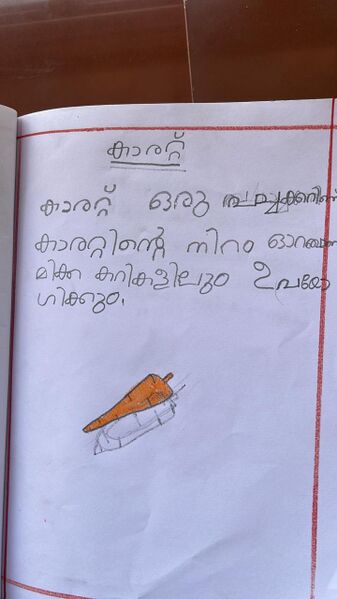 കാരറ്റ്
കാരറ്റ് ഒരു പച്ചക്കറിണ്
കാരറ്റിന്റെ നിറം ഓറഞ്ചാണ്
മിക്ക കറികളിലും ഉപയോ
ഗിക്കും.